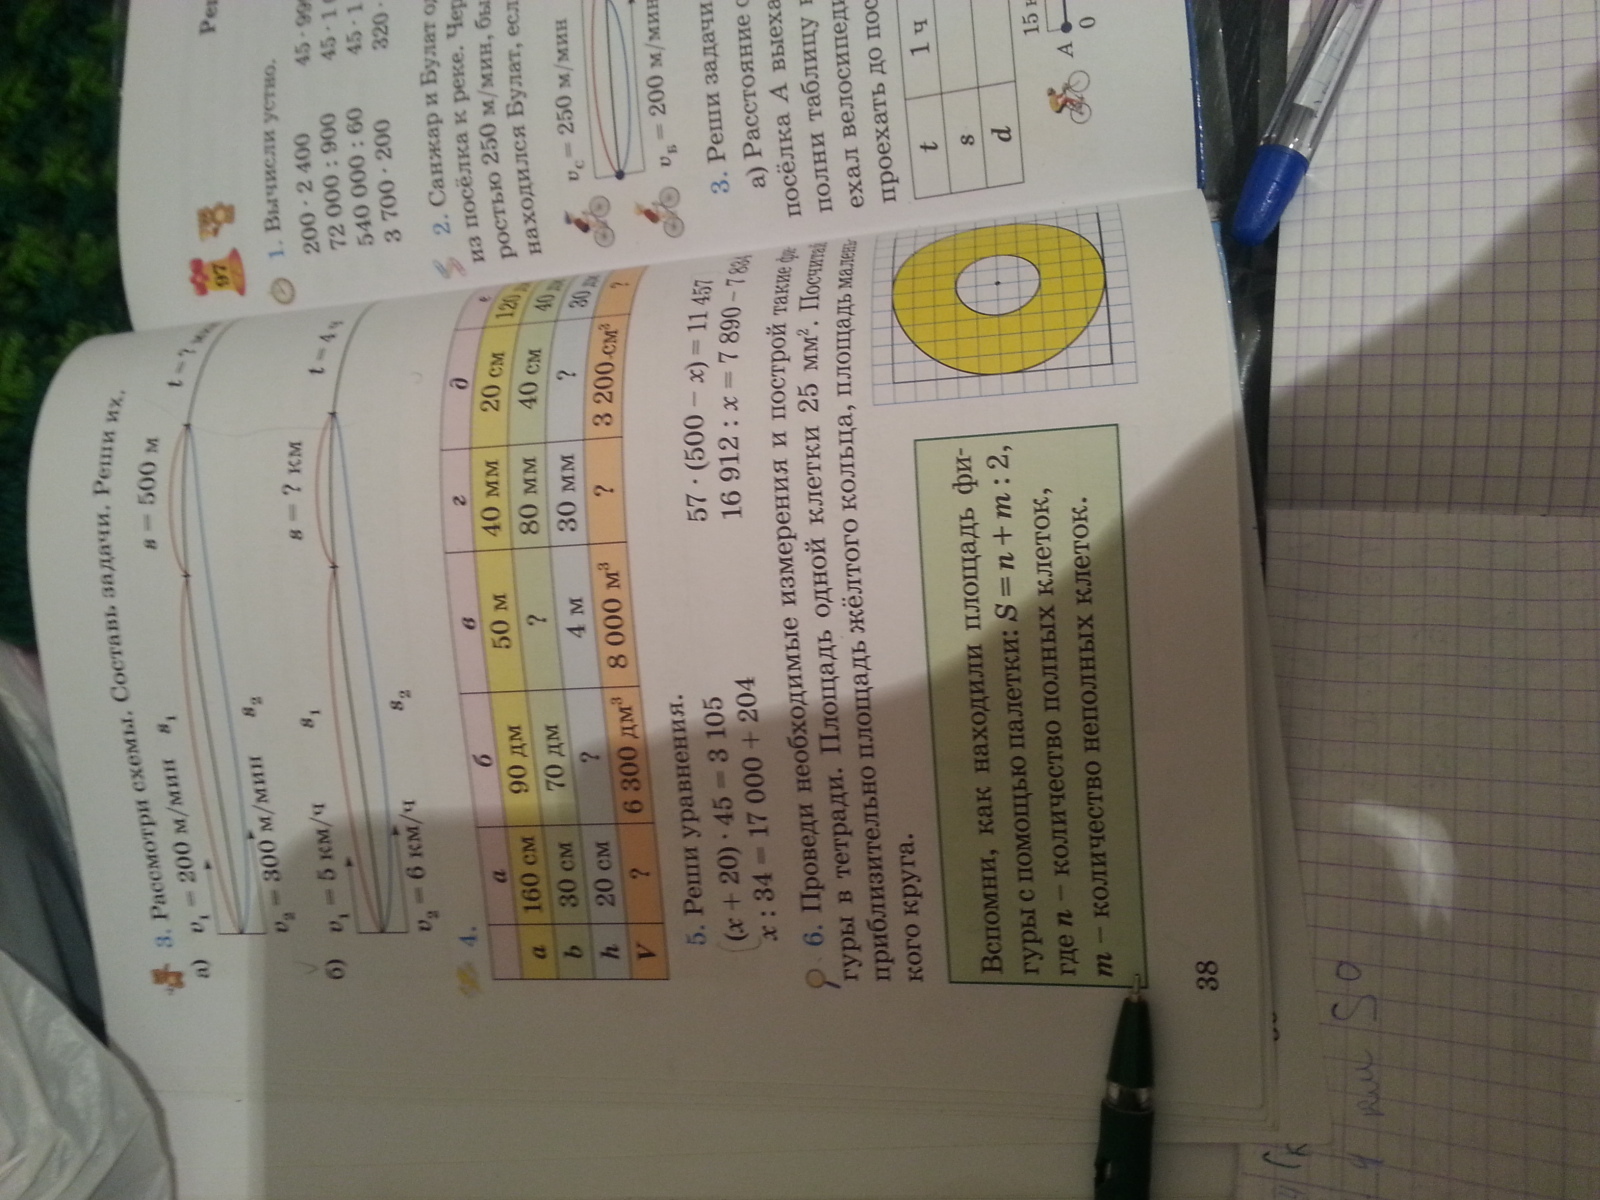 3. Рассмотри схемы. Составь задачи. Реши их.
а) v₁ = 200 м/мин s₁ s = 500 м t = ?
v₂ = 300 м/мин s₂
б) v₁ = 5 км/ч s₁ s = ? км t = 4 ч
v₂ = 6 км/ч s₂
4.
а б в г д е
a 160 см 90 дм 50 м 40 мм 20 см 120
b 30 см 70 дм ? 80 мм 40 см 40
h 20 см ? 4 м 30 мм ? 30
V ? 6 300 дм³ 8 000 м³ ? 3 200 см³ ?
5. Реши уравнения.
(x + 20) · 45 = 3 105 57 · (500 − x) = 11 457
x : 34 = 17 000 + 204 16 912 : x = 7 890 − 7 834
6. Проведи необходимые измерения и построй такие фи-
гуры в тетради. Площадь одной клетки 25 мм². Посчитай
приблизительно площадь жёлтого кольца, площадь малень-
кого круга.
Вспомни, как находили площадь фи-
гуры с помощью палетки: S = n + m : 2,
где n − количество полных клеток,
m − количество неполных клеток.
38
97
1. Вычисли устно.
200 · 2 400 45 · 99
72 000 : 900 45 · 1
540 000 : 60 45 · 1
3 700 · 200 320 ·
2. Санжар и Булат
из посёлка к реке.
ростью 250 м/мин,
находился Булат, есл
v_С = 250 м/мин
v_Б = 200 м/мин
3. Реши задачи
а) Расстояние
посёлка A выеха
полни таблицу
ехал велосипеди
проехать до пос
t 1 ч
s
d
15
A
0